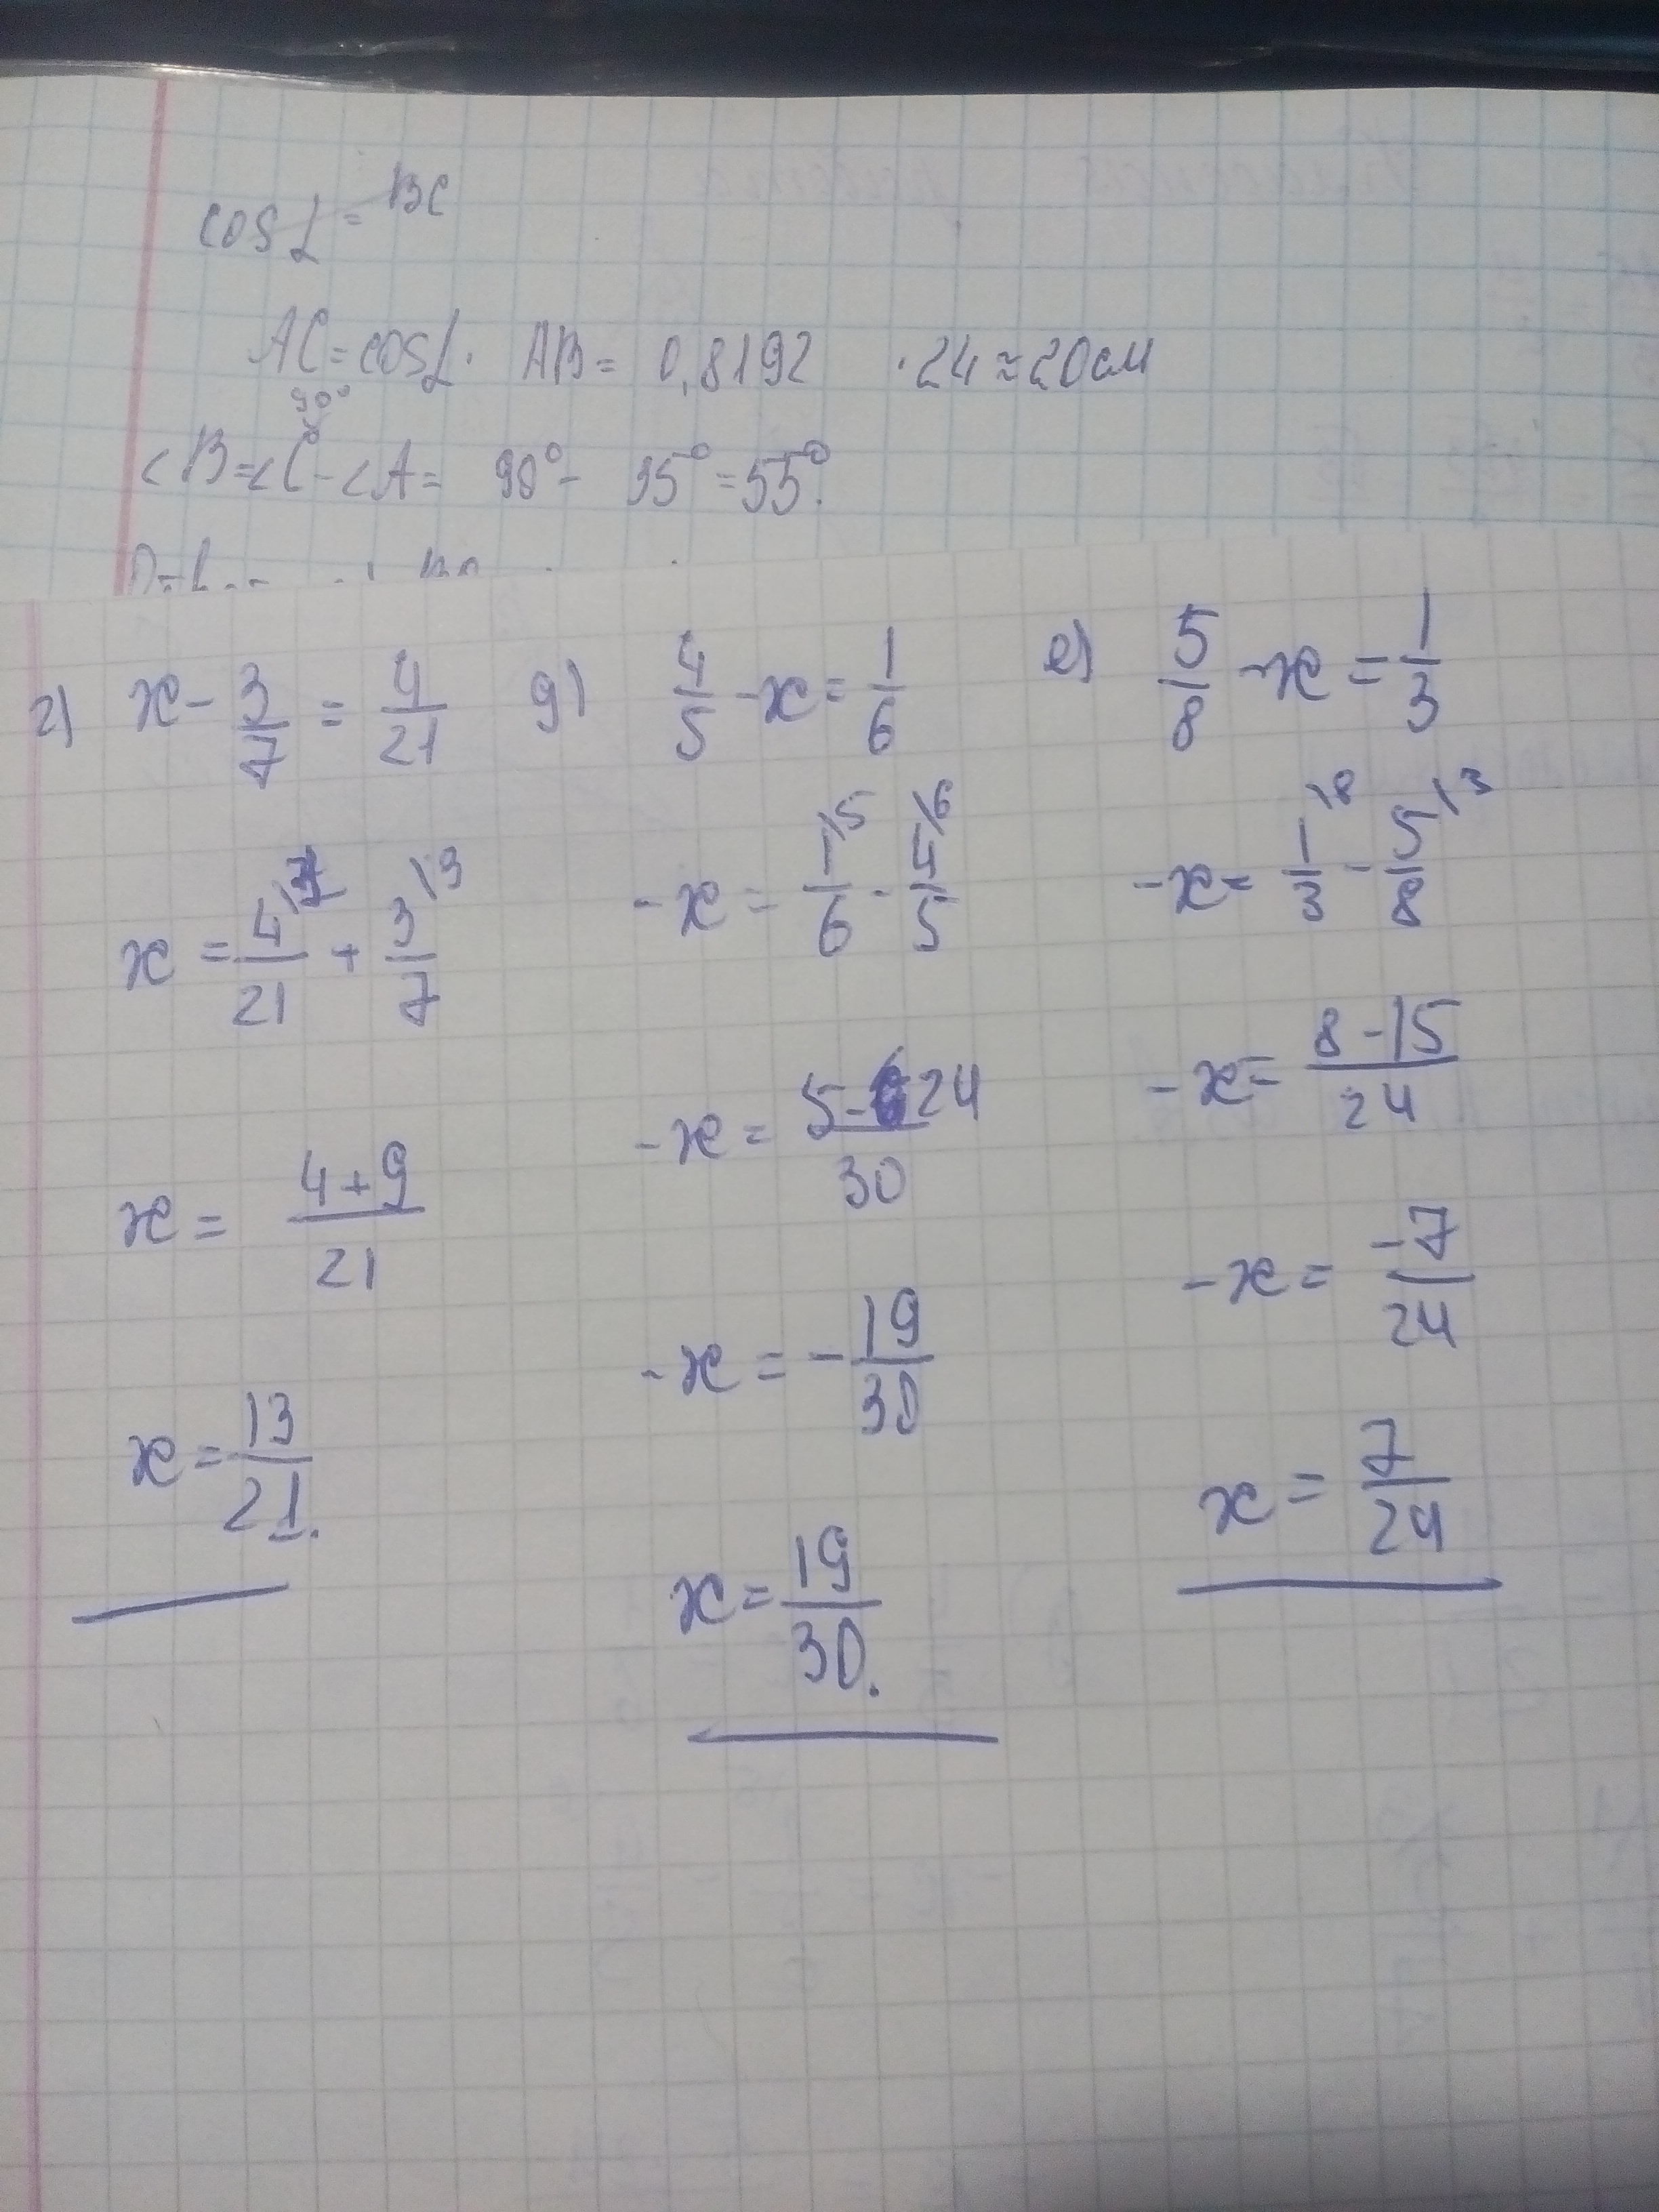 cos α = BC
AC = cos α · AB = 0,8192 · 24 ≈ 20 см
90°
∠B = ∠C - ∠A = 90° - 35° = 55°.
г) x - 3/7 = 4/21
x = 4/21 + 3\3/7
x = (4+9)/21
x = 13/21.
д) 4/5 - x = 1/6
-x = 1\5/6 - 4\6/5
-x = (5-24)/30
-x = -19/30
x = 19/30.
е) 5/8 - x = 1/3
-x = 1\8/3 - 5\3/8
-x = (8-15)/24
-x = -7/24
x = 7/24